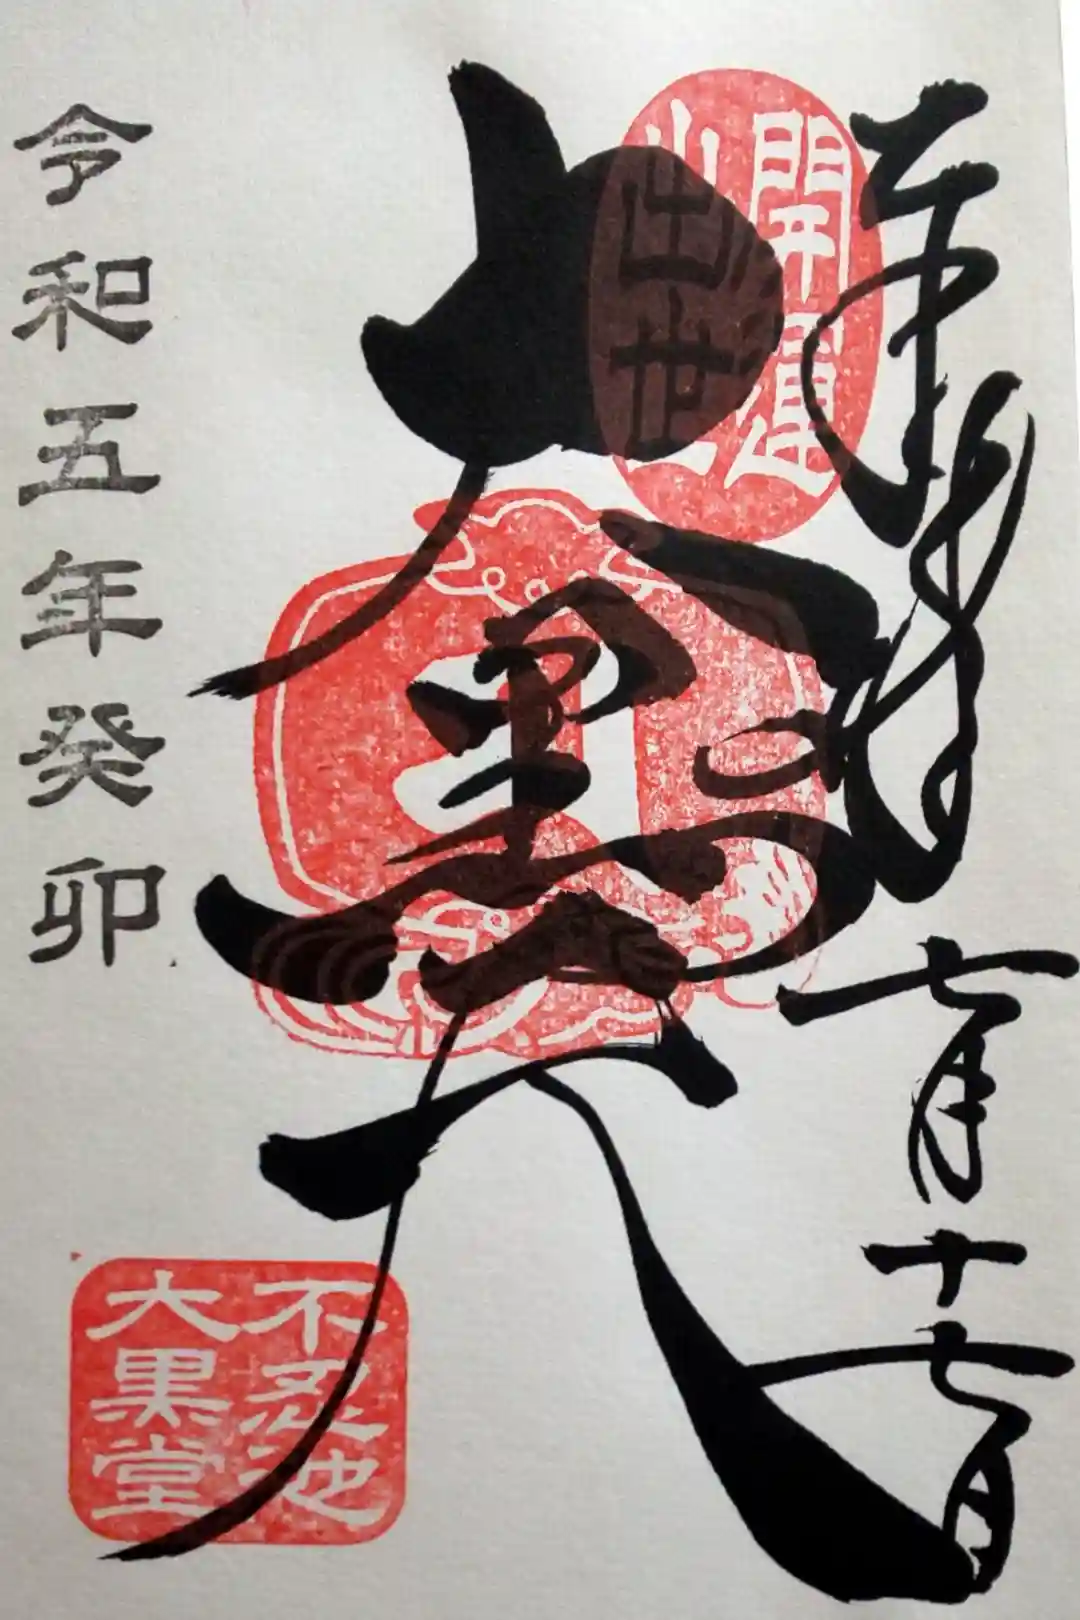 奉拝
七月十七日
開運
出世
大黒天
令和五年癸卯
不忍池
大黒堂